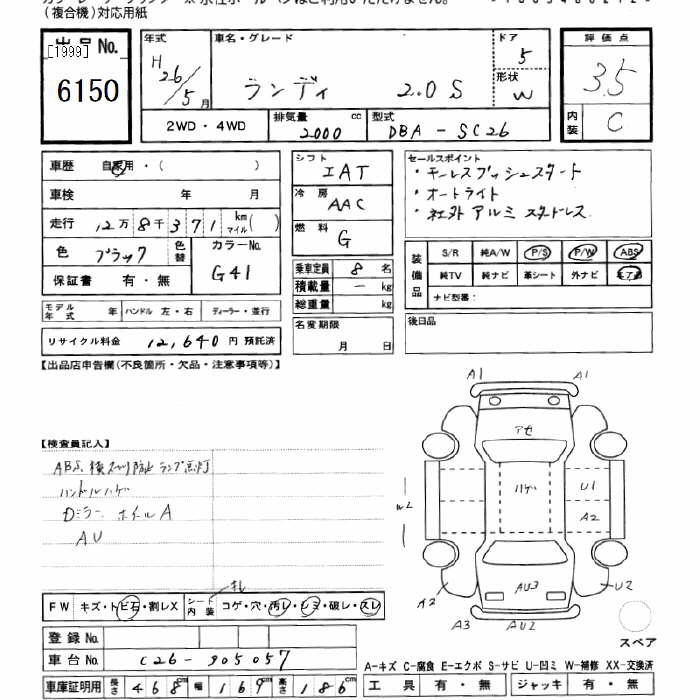 (複合機)対応用紙
出品 No.
[1999]
6150
年式 H26/5月
車名・グレード ランディ 2.0S
ドア 5
形状 W
評価点 3.5
内装 C
2WD・4WD
排気量 2000 cc
型式 DBA-SC26
車歴 自家用・( )
車検 年 月
走行 12万8千371 km マイル( )
色 ブラック 色替 カラーNo. G41
保証書 有・無
シフト IAT
冷房 AAC
燃料 G
乗車定員 8 名
積載量 - kg
総重量 kg
名変期限 月 日
セールスポイント
・キーレスプッシュスタート
・オートライト
・社外アルミスタッドレス
装備品 S/R 純A/W P/S P/W ABS
純TV 純ナビ 革シート 外ナビ エアB
ナビ型番:
後日品
モデル年式 ハンドル 左・右 ディーラー・並行
リサイクル料金 12,640 円 預託済
【出品店申告欄(不良箇所・欠品・注意事項等)】
【検査員記入】
ABS、横スベリ防止 ランプ点灯
ハンドルハゲ
Dミラー ホイルA
AU
A1 A1
アセ
ハゲ
U1
A2
W2
AU3
A2 U2
A3 AU2
スペア
FW キズ・トビ石・割レX シート内装 コゲ・穴・汚レ・シミ・破レ・スレ
登録 No.
車台 No. C26-905057
車庫証明用 長さ 468cm 幅 169cm 高さ 186cm
A-キズ C-腐食 E-エクボ S-サビ U-凹ミ W-補修 XX-交換済
工具 有・無 ジャッキ 有・無